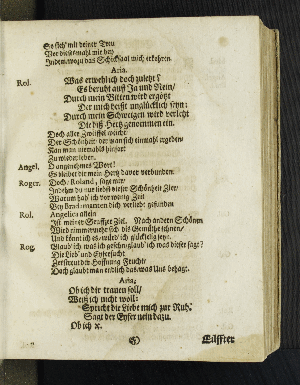 So sich mit deiner Treu
Aria.
Rol. Was erwehl ich doch zuletzt?
Es beruht auff Ja und Nein/
Durch mein Bitten wird ergötzt
Der mich heist unglücklich seyn:
Durch mein Schweigen wird verletzt
Die diß Hertz genommen ein.
Doch aller Zweiffel weicht
Der Schönheit/ der man sich einmahl ergeben/
Kan man niemahls hierauf
Zuwiederleben.
Angel. O angenehmes Wort!
Es bleibet dir mein Hertz davor verbunden.
Roger. Doch/ Roland/ sage mir/
Indem du nur liebst dieser Schönheit Zier/
Warum hab ich vor wenig Zeit
Bey Bradamanten dich verliebt gefunden
Rol. Angelica allein
Ist meiner Seuffzer Ziel. Nach andern Schönen
Wird nimmermehr sich das Gemüthe sehnen/
Und könt ich es/ würd ich glücklich seyn.
Rog. Glaub ich/ was ich gesehn/ glaub ich was dieser sagt?
Die Lieb und Eyfersucht
Zerstreut der Hoffnung Frucht/
Doch glaubt man endlich das/ was uns behagt.
Aria.
Ob ich dir trauen soll/
Weiß ich nicht woll:
Spricht die Liebe mich zur Ruh/
Sagt der Eyfer nein dazu.
Ob ich ꝛc.
Eilffter